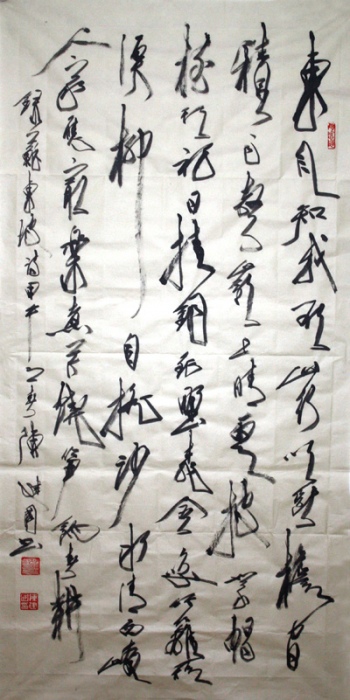 東風知我欲山行吹斷檐間
積雨聲嶺上晴雲披絮帽
樹頭初日掛銅鉦野桃含笑竹籬短
溪柳自搖沙水清西崦
人家應最樂煮芹燒筍餉春耕
錄蘇東坡詩甲午之春陳建國書